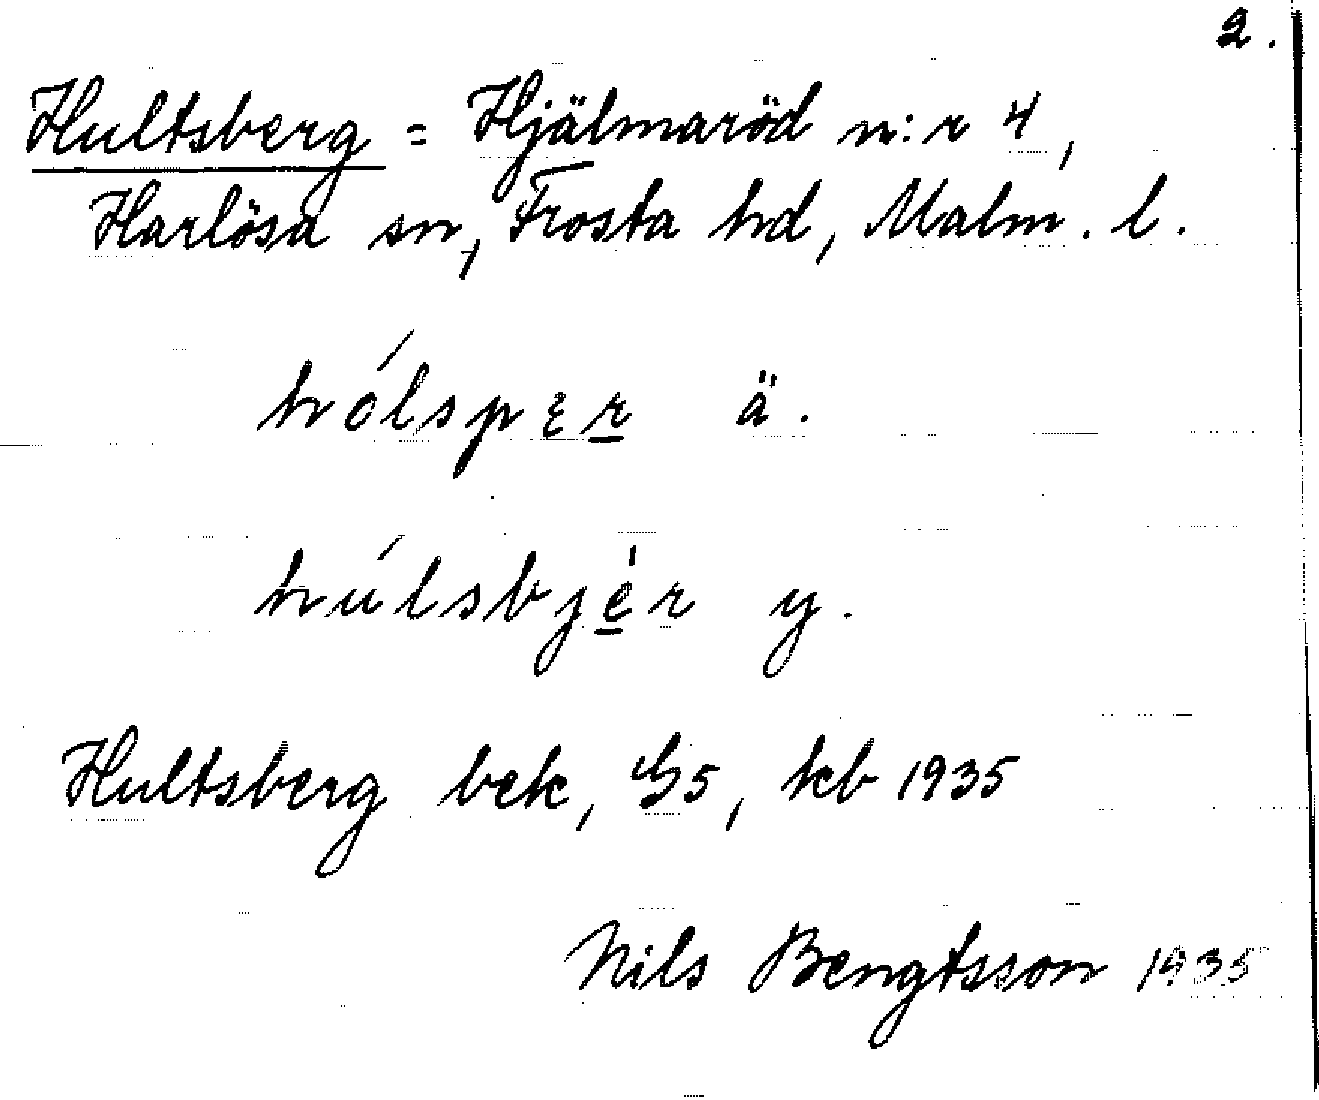 2.
Hultsberg = Hjälmaröd n:r 4,
Harlösa sn, Frosta hd, Malm. l.
hólspɛr ä.
húlsbjer y.
Hultsberg bek, kb 1935
Nils Bengtsson 1935